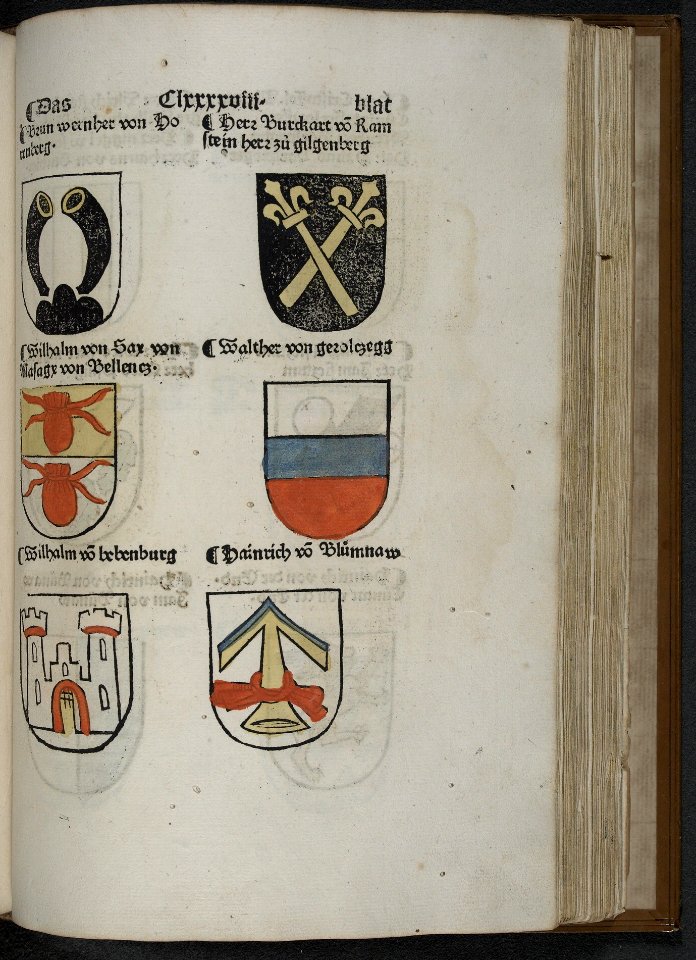 Das Clxxxxviii. blat
Brun wernher von Ho
rnberg.
Herr Burckart võ Ram
stein herr zů gilgenberg
Wilhalm von Sax von
Masagx von Bellencz.
Walther von geroltzegg
Wilhalm võ bebenburg
Hainrich võ Blůmnaw